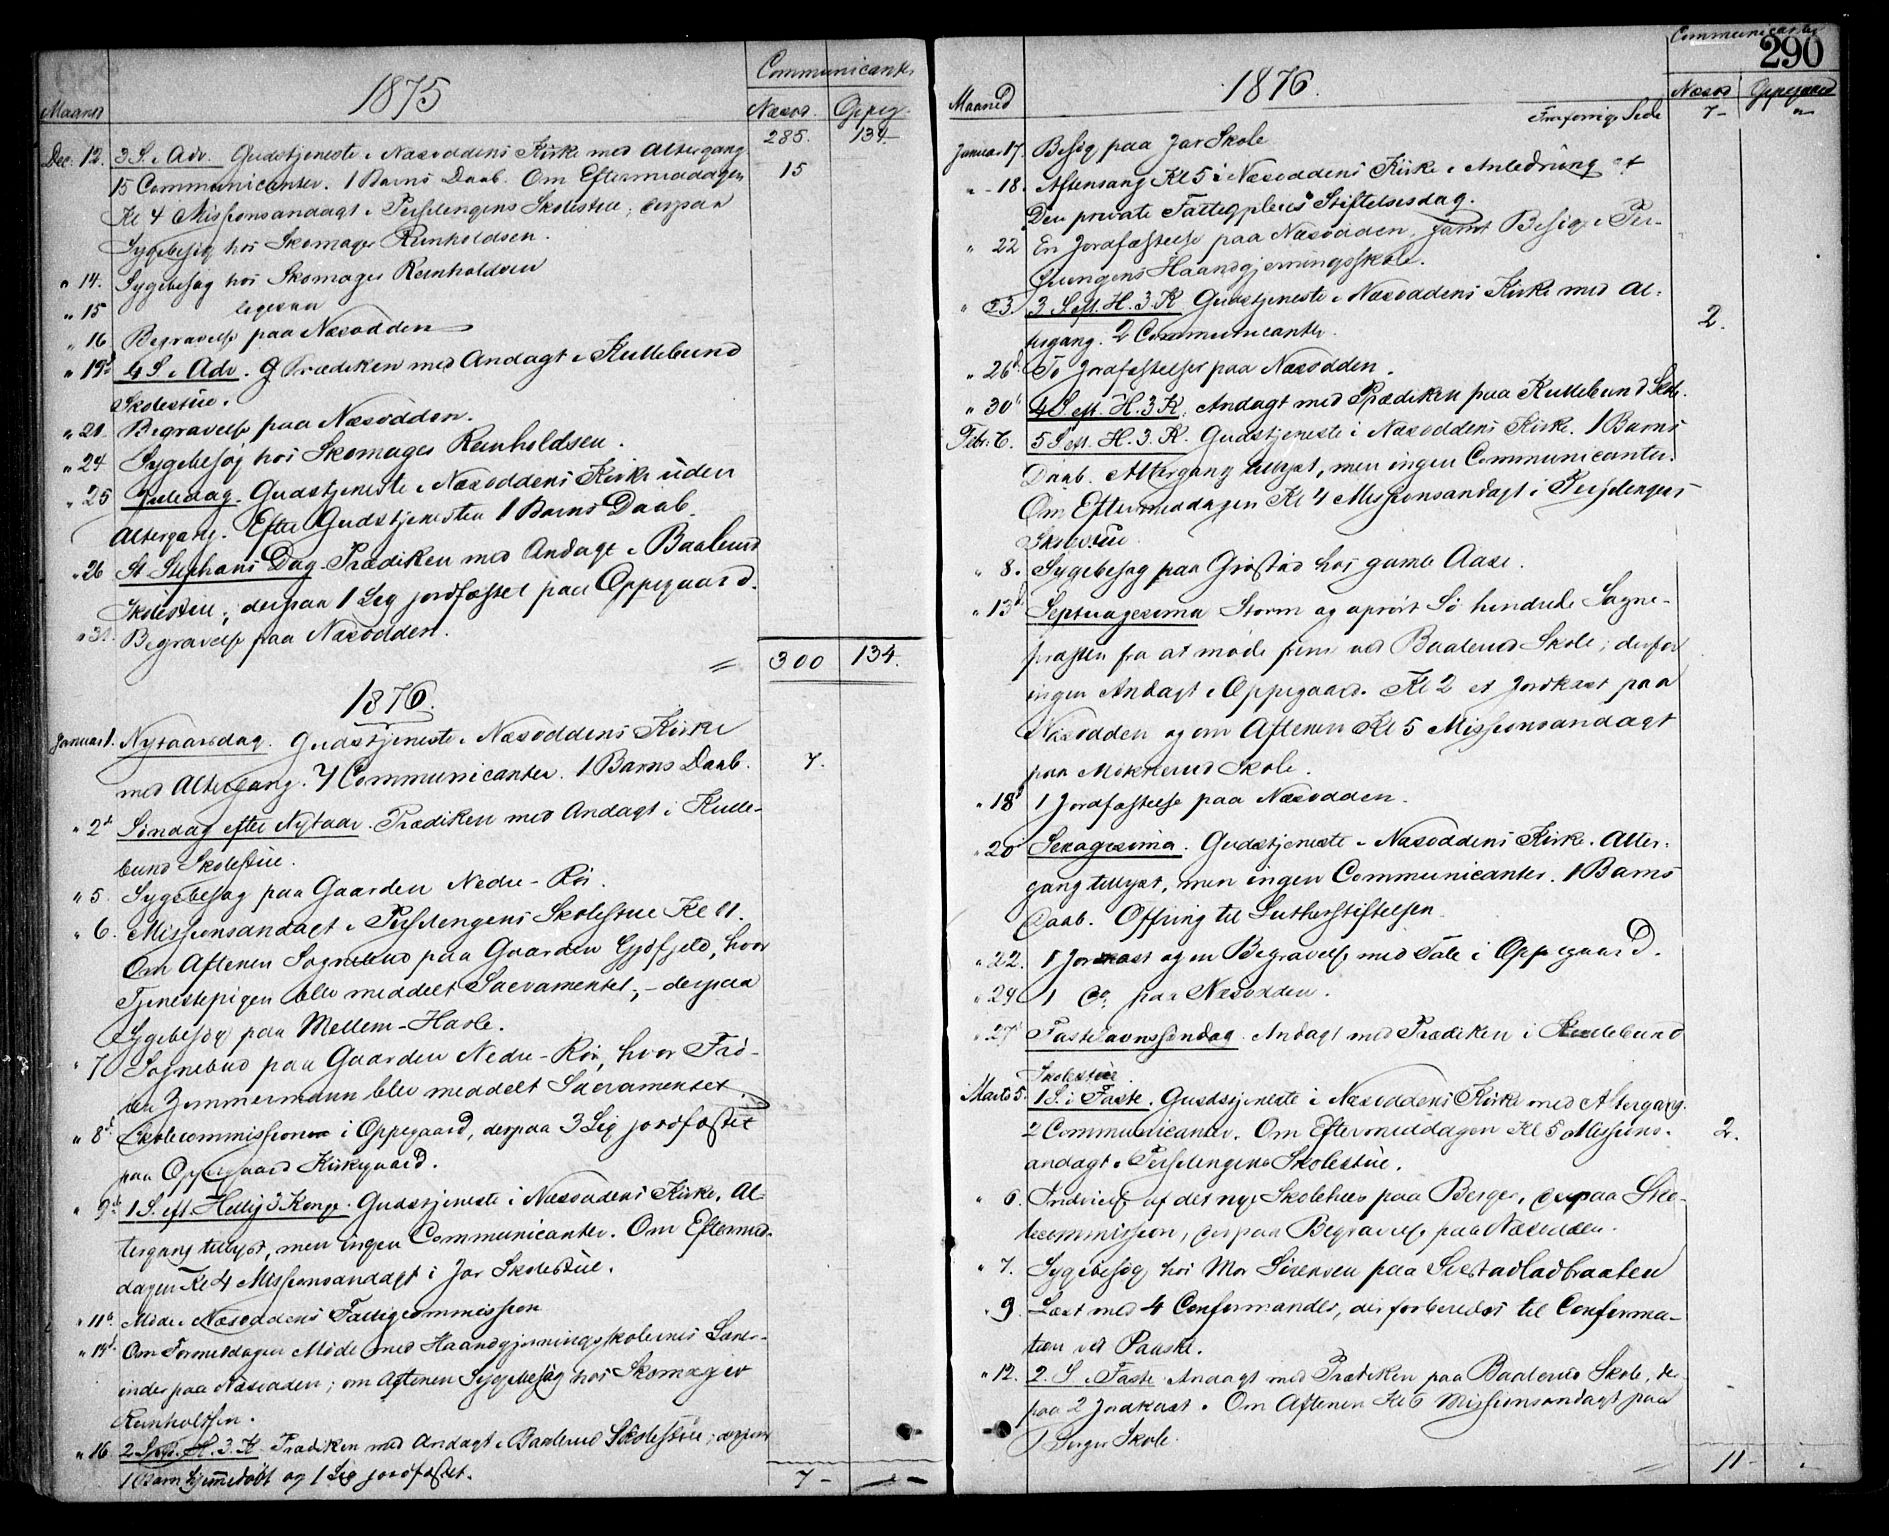 1875
Communicanter
Maaned
Næsod. Oppeg.
285. 134
Dec. 12. 3 S. i Adv. Gudstjeneste i Næsoddens Kirke med Altergang
15 Communicanter. 1 Barns Daab. Om Eftermiddagen 15
Kl 4 Missionsandagt i Skolestue; derpaa
Sygebesøg hos Skomager Reinholdsen.
" 14. Sygebesøg hos Skomager Reinholdsen
" 15 ligesaa
" 16 Begravelse paa Næsodden
" 19d 4 S. i Adv. Prædiken med Andagt i Kullebund
Skolestue.
" 21. Begravelse paa Næsodden.
" 24 Sygebesøg hos Skomager Reinholdsen.
" 25 Juledag. Gudstjeneste i Næsoddens Kirke uden
Altergang. Efter Gudstjenesten 1 Barns Daab.
" 26 St Stephans Dag. Prædiken med Andagt i Baalerud
Skolestue; derpaa 1 Lig jordfæstet paa Oppegaard.
" 31. Begravelse paa Næsodden.
= 300 134.
1876.
Januar 1. Nytaarsdag. Gudstjeneste i Næsoddens Kirke
med Altergang. 7 Communicanter. 1 Barns Daab. 7.
" 2d Søndag efter Nytaar. Prædiken med Andagt i Kulle-
bund Skolestue.
" 5 Sygebesøg paa Gaarden Nedre-Rør.
" 6. Missionsandagt i Skolestue Kl 11.
Om Aftenen Sognebud paa Gaarden Gjøfjeld, hvor
Tjenestepigen blev meddelt Sacramentet; - derpaa
Sygebesøg paa Mellem-Hasle.
" 7 Sognebud paa Gaarden Nedre-Rør, hvor Frø-
ken Zimmermann blev meddelt Sacramentet.
" 8d Skolecommission i Oppegaard, derpaa 3 Lig jordfæstet
paa Oppegaard Kirkegaard.
" 9d 1 S. eft. Hellig 3 Konge. Gudstjeneste i Næsoddens Kirke. Al-
tergang tillyst, men ingen Communicanter. Om Eftermid-
dagen Kl 4 Missionsandagt i Jar Skolestue.
" 11d Møde i Næsoddens Fattigcommission
" 14d Om Formiddagen Møde med Haandgjerningsskolernes Lærer-
inder paa Næsodden; om Aftenen Sygebesøg hos Skomager
Reinholdsen.
" 16 2 S. eft. H. 3. K. Prædiken med Andagt i Baalerud Skolestue; derpaa
1 Barn hjemmedøbt og 1 Lig jordfæstet.
7 -
290
Communicanter
1876.
Maaned
Næsod Oppegaard
Fra forrige Side 7 - "
Januar 17. Besøg paa Jar Skole
" - 18. Aftensang Kl 5 i Næsoddens Kirke i Anledning af
Den private Fattigpleies Stiftelsesdag.
" 22 En Jordfæstelse paa Næsodden, samt Besøg i
Haandgjerningsskole.
" 23. 3 S. eft. H. 3. K. Gudstjeneste i Næsoddens Kirke med Al-
tergang. 2 Communicanter. 2.
" 26d. To Jordfæstelser paa Næsodden.
" 30d 4 S. eft. H. 3 K. Andagt med Prædiken paa Kullebund Skole.
Febr. 6. 5 S. eft. H. 3. K. Gudstjeneste i Næsoddens Kirke. 1 Barns
Daab. Altergang tillyst, men ingen Communicanter.
Om Eftermiddagen Kl 4 Missionsandagt i
Skolestue.
" 8. Sygebesøg paa Grøstad hos gamle Aase.
" 13d Septuagesima Storm og oprørt Sø hindrede Sogne-
præsten fra at møde frem ved Baalerud Skole; derfor
ingen Andagt i Oppegaard. Kl 2 et Jordkast paa
Næsodden og om Aftenen Kl 5 Missionsandagt
paa Skole.
" 18d 1 Jordfæstelse paa Næsodden.
" 20 Sexagesima. Gudstjeneste i Næsoddens Kirke. Alter-
gang tillyst, men ingen Communicanter. 1 Barns
Daab. Offring til Lutherstiftelsen.
" 22. 1 Jordkast og en Begravelse med Tale i Oppegaard.
" 24 1 Do paa Næsodden.
" 27d Fastelavnssøndag. Andagt med Prædiken i Kullebund
Skolestue.
Marts 5. 1 S. i Faste. Gudstjeneste i Næsoddens Kirke med Altergang.
2 Communicanter. Om Eftermiddagen Kl 5 Missions- 2.
andagt i Skolestue.
" 6. Indvielse af det nye Skolehus paa Berger, derpaa Sko-
lecommission, derpaa Begravelse paa Næsodden.
" 7. Sygebesøg hos Mor Sørensen paa
" 9. Læst med 4 Confirmander, der forberedes til Confirma-
tion ved Paaske.
" 12. 2. S. i Faste Andagt med Prædiken paa Baalerud Skole, der-
paa 2 Jordkast. Om Aftenen Kl 6 Missionsandagt paa
Berger Skole.
= 11 -